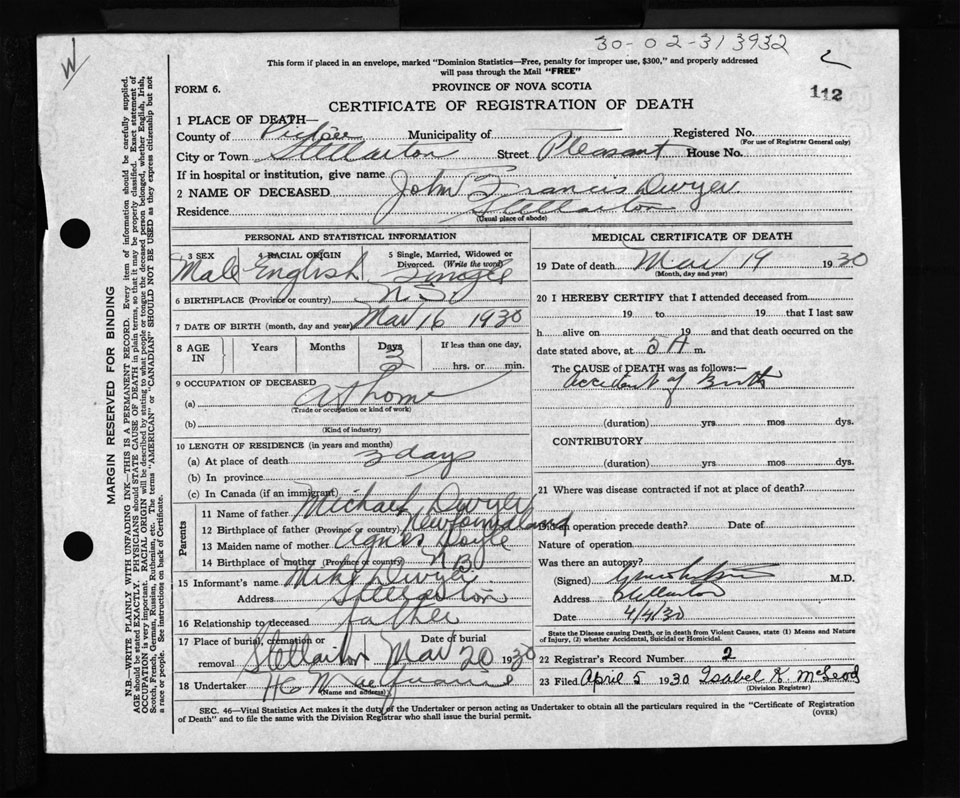 30-02-313932
W
This form if placed in an envelope, marked "Dominion Statistics—Free, penalty for improper use, $300," and properly addressed
will pass through the Mail "FREE"
112
FORM 6.
PROVINCE OF NOVA SCOTIA
CERTIFICATE OF REGISTRATION OF DEATH
1 PLACE OF DEATH—
County of Pictou Municipality of Registered No.
(For use of Registrar General only)
City or Town Stellarton Street Pleasant House No.
If in hospital or institution, give name
2 NAME OF DECEASED John Francis Dwyer
Residence Stellarton
(Usual place of abode)
PERSONAL AND STATISTICAL INFORMATION
3 SEX Male
4 RACIAL ORIGIN English
5 Single, Married, Widowed or Divorced. (Write the word) Single
6 BIRTHPLACE (Province or country) N.S.
7 DATE OF BIRTH (month, day and year) Mar 16 1930
8 AGE IN Years Months Days 3 If less than one day, hrs. or min.
9 OCCUPATION OF DECEASED
(a) At home
(Trade or occupation or kind of work)
(b)
(Kind of industry)
10 LENGTH OF RESIDENCE (in years and months)
(a) At place of death 3 days
(b) In province
(c) In Canada (if an immigrant)
Parents
11 Name of father Michael Dwyer
12 Birthplace of father (Province or country) Newfoundland
13 Maiden name of mother Agnes Doyle
14 Birthplace of mother (Province or country) N.B.
15 Informant's name Mike Dwyer
Address Stellarton
16 Relationship to deceased father
17 Place of burial, cremation or removal Stellarton Date of burial Mar 20 1930
18 Undertaker H C
(Name and address)
MEDICAL CERTIFICATE OF DEATH
19 Date of death Mar 19 1930
(Month, day and year)
20 I HEREBY CERTIFY that I attended deceased from
19 to 19 that I last saw
h alive on 19 and that death occurred on the
date stated above, at 5 A m.
The CAUSE OF DEATH was as follows:—
Accident of Birth
(duration) yrs mos dys.
CONTRIBUTORY
(duration) yrs mos dys.
21 Where was disease contracted if not at place of death?
Did an operation precede death? Date of
Nature of operation
Was there an autopsy?
(Signed) M.D.
Address Stellarton
Date 4/4/30
State the Disease causing Death, or in death from Violent Causes, state (1) Means and Nature
of Injury, (2) whether Accidental, Suicidal or Homicidal.
22 Registrar's Record Number 2
23 Filed April 5 1930 Isabel K. McLeod
(Division Registrar)
SEC. 46—Vital Statistics Act makes it the duty of the Undertaker or person acting as Undertaker to obtain all the particulars required in the "Certificate of Registration
of Death" and to file the same with the Division Registrar who shall issue the burial permit.
(OVER)
MARGIN RESERVED FOR BINDING
N.B.—WRITE PLAINLY WITH UNFADING INK—THIS IS A PERMANENT RECORD. Every item of information should be carefully supplied.
AGE should be stated EXACTLY. PHYSICIANS should STATE CAUSE OF DEATH in plain terms, so that it may be properly classified. Exact statement of
OCCUPATION is very important. RACIAL ORIGIN will be described by stating to what people or tongue the deceased person belonged, whether English, Irish,
Scotch, French, German, Russian, Ruthenian, etc. The terms "AMERICAN" or "CANADIAN" SHOULD NOT BE USED as they express citizenship but not
a race or people. See instructions on back of Certificate.